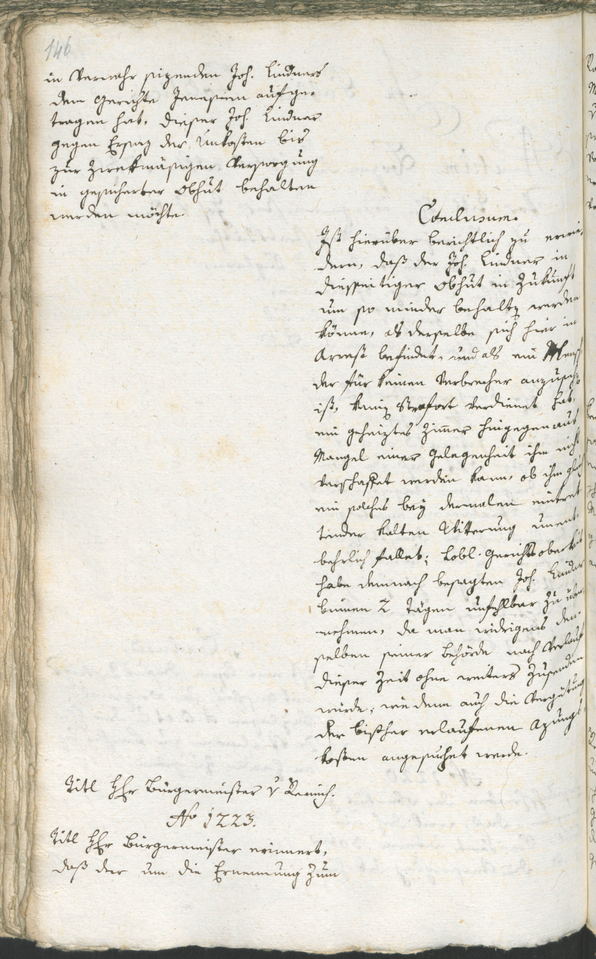 146
in Verwahr sizenden Joh. Lindners
dem Gerichte Jenesien aufge-
tragen hat, dieser Joh. Lindner
gegen Ersaz der Unkosten bis
zur zwekmäsigen Versorgung
in gesicherter Obhut behalten
werden möchte.
Conclusum.
Ist hierüber berichtlich zu erwie-
dern, daß der Joh. Lindner in
diesseitiger Obhut in Zukunft
um so minder behalten werden
könne, als derselbe sich hier in
Arrest befindet, und als ein Mensch
der für keinen Verbrecher anzusehen
ist, kein Strafort verdienet hat,
ein geheiztes Zimmer hingegen aus
Mangel einer Gelegenheit ihm nicht
verschaffet werden kann, ob ihm gleich
ein solches bey dermalen eintret-
tender kalten Witterung unent-
behrlich fallet; Löbl. Gerichtsobrigkeit
habe demnach besagten Joh. Lindner
binnen 2 Tägen unfehlbar zu über-
nehmen, da man widrigens den-
selben seiner Behörde nach Verlauf
dieser Zeit ohne weiters zusenden
würde, wie dann auch die Vergütung
der bisher erlaufenen Azungs-
kosten angesuchet werde.
Titl Hr Bürgermeister v
No 1223.
Titl Hr Bürgermeister erinnert,
daß der um die Ernennung zum